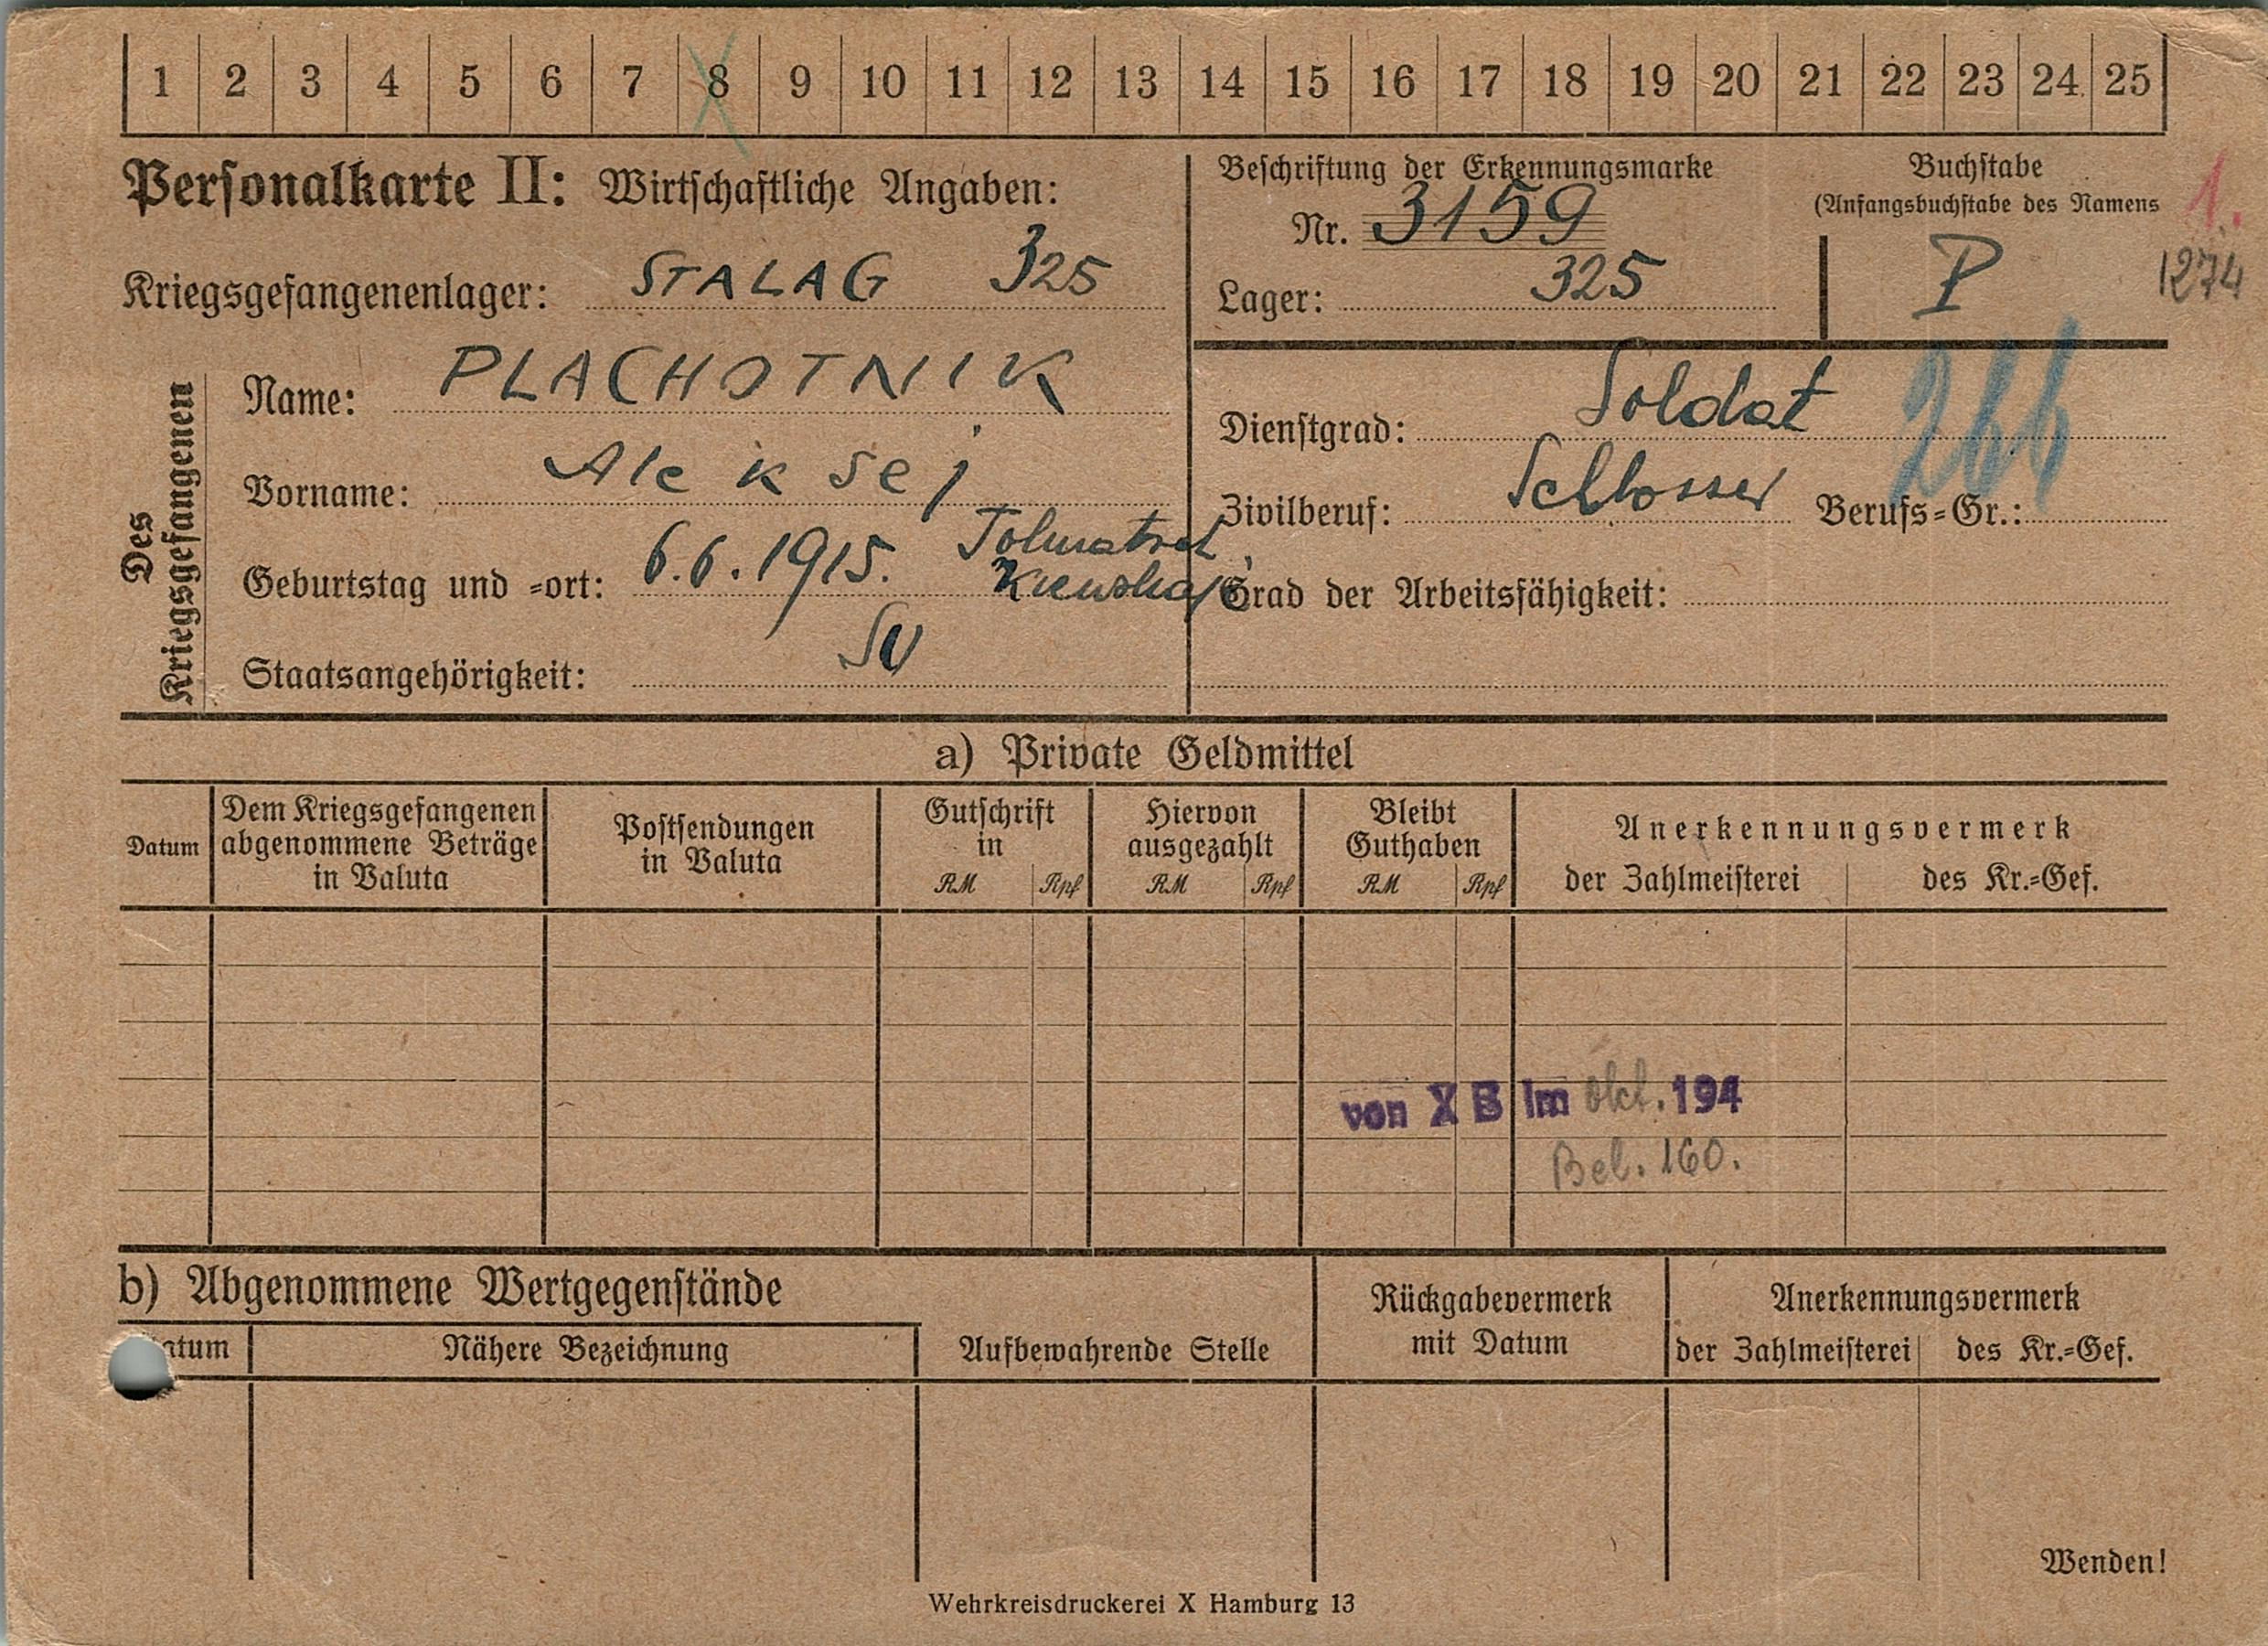 1 2 3 4 5 6 7 8 9 10 11 12 13 14 15 16 17 18 19 20 21 22 23 24 25
Personalkarte II: Wirtschaftliche Angaben:
Kriegsgefangenenlager: STALAG 325
Beschriftung der Erkennungsmarke
Nr. 3159
Lager: 325
Buchstabe
(Anfangsbuchstabe des Namens
P
1.
1274
Des Kriegsgefangenen
Name: PLACHOTNIK
Vorname: Aleksej
Geburtstag und =ort: 6.6.1915.
Staatsangehörigkeit: SU
Dienstgrad: Soldat
266
Zivilberuf: Schlosser Berufs=Gr.:
Grad der Arbeitsfähigkeit:
a) Private Geldmittel
Datum
Dem Kriegsgefangenen
abgenommene Beträge
in Valuta
Postsendungen
in Valuta
Gutschrift
in
RM Rpf
Hiervon
ausgezahlt
RM Rpf
Bleibt
Guthaben
RM Rpf
Anerkennungsvermerk
der Zahlmeisterei des Kr.=Gef.
von X B Im Okt. 194
Bel. 160.
b) Abgenommene Wertgegenstände
atum
Nähere Bezeichnung
Aufbewahrende Stelle
Rückgabevermerk
mit Datum
Anerkennungsvermerk
der Zahlmeisterei des Kr.=Gef.
Wenden!
Wehrkreisdruckerei X Hamburg 13